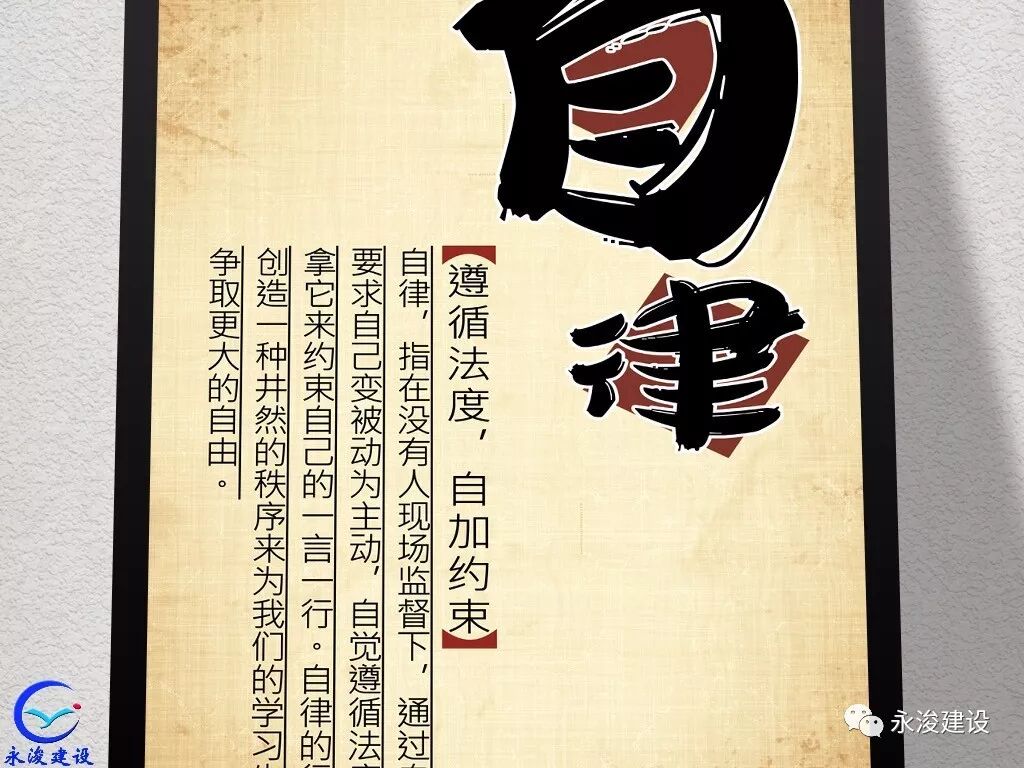 自律
【遵循法度，自加约束】
自律，指在没有人现场监督下，通过
要求自己变被动为主动，自觉遵循法
拿它来约束自己的一言一行。自律的
创造一种井然的秩序来为我们的学习
争取更大的自由。
永浚建设
永浚建设